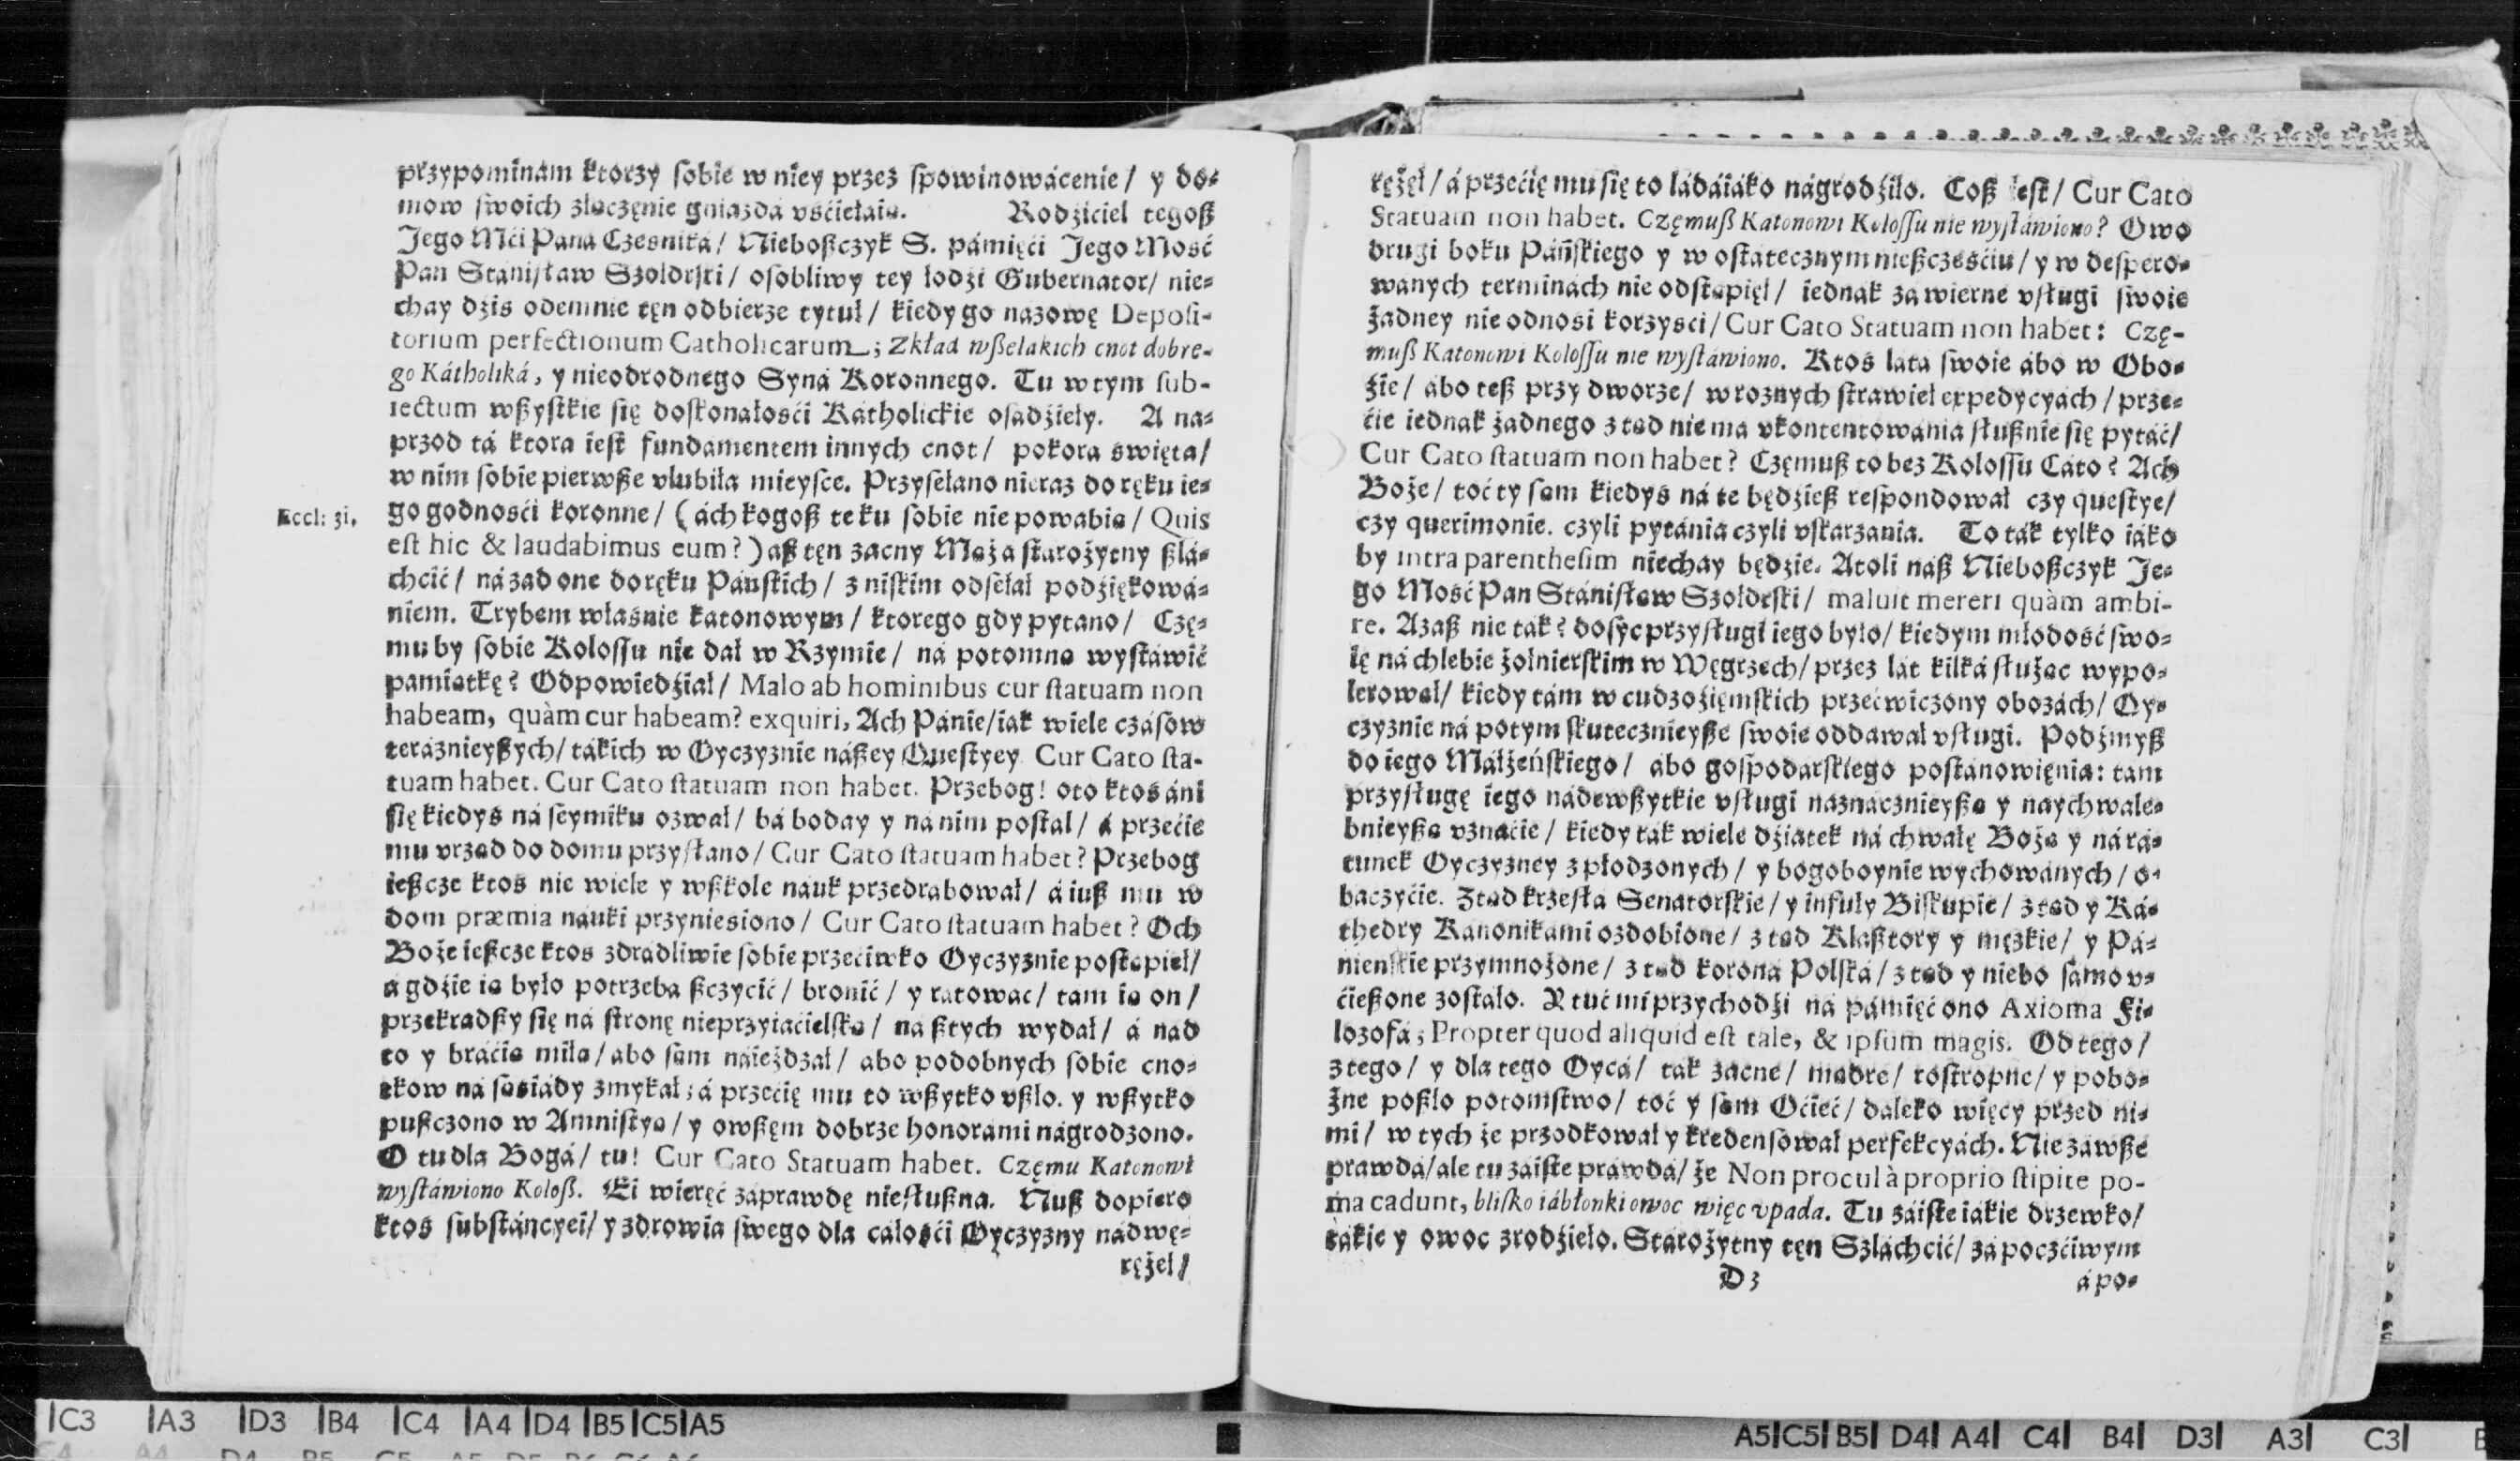 przypominam ktorzy ſobie w niey przez ſpowinowácenie / y do-
mow ſwoich złączęnie gniazdá vśćiełaią. Rodźiciel tegoß
Jego Mći Páná Czesniká / Nieboßczyk S. pámięći Jego Mość
Pan Stániſław Szołdrſki / oſobliwy tey łodźi Gubernator / nie-
chay dźis odemnie tęn odbierze tytuł / kiedy go nazowę Depoſi-
torium perfectionum Catholicarum; Zkład wßelakich cnot dobre-
go Kátholiká, y nieodrodnego Syná Koronnego. Tu w tym ſub-
iectum wßyſtkie się doſkonałośći Kátholickie oſadźieły. A na-
przod tá ktora ieſt fundamentem innych cnot / pokora święta /
w nim ſobie pierwße vlubiła mieyſce. Przyſełano nieraz do ręku ie-
Eccl: 31. go godnośći koronne / (ách kogoß te ku ſobie nie powabią / Quis
est hic & laudabimus eum?) aß tęn zacny Mąż a ſtarożytny ßlá-
chćić / názad one do ręku Páńſkich / z niſkim odſełał podźiękowá-
niem. Trybem własnie katonowym / ktorego gdy pytano / Czę-
mu by ſobie Koloſſu nie dał w Rzymie / ná potomną wyſtáwić
pamiątkę? Odpowiedźiał / Malo ab hominibus cur ſtatuam non
habeam, quàm cur habeam? exquiri, Ach Pánie / iák wiele czáſow
teráznieyßych / tákich w Oyczyznie náßey Queſtyey Cur Cato ſta-
tuam habet. Cur Cato ſtatuam non habet. Przebog! oto ktos áni
się kiedys ná ſeymiku ozwał / bá boday y ná nim poſtał / á przećie
mu vrząd do domu przyſłano / Cur Cato ſtatuam habet? Przebog
ießcze ktos nie wiele y wßkole nauk przedrabował / á iuß mu w
dom præmia náuki przyniesiono / Cur Cato ſtatuam habet? Och
Boże ießcze ktos zdradliwie ſobie przećiwko Oyczyznie poſtąpieł /
á gdźie ią było potrzebá ßczyćić / bronić / y ratować / tam ią on /
przekradßy się ná ſtronę nieprzyiaćielſką / ná ßtych wydał / á nád
to y bráćią miłą / ábo ſam náieżdzał / ábo podobnych ſobie cno-
tkow ná ſąsiády zmykał; á przećię mu to wßytko vßło. y wßytko
pußczono w Amniſtyą / y owßęm dobrze honorámi nágrodzono.
O tu dla Bogá / tu! Cur Cato Statuam habet. Częmu Katonowi
wyſtáwiono Koloß. Ei wieręć záprawdę nieſłußna. Nuß dopiero
ktos ſubſtáncyei / y zdrowia ſwego dla cáłośći Oyczyzny nádwę-
rężeł /
rężęł / á przećię mu się to ládáiáko nágrodźiło. Coß ieſt / Cur Cato
Statuam non habet. Częmuß Katonowi Koloſſu nie wyſtáwiono? Owo
drugi boku Páńſkiego y w oſtátecznym nießczęśćiu / y w deſpero-
wanych terminách nie odſtąpięł / iednák zá wierne vſługi ſwoie
żadney nie odnosi korzyśći / Cur Cato Statuam non habet: Czę-
muß Katonowi Koloſſu nie wyſtáwiono. Ktos láta ſwoie ábo w Obo-
źie / ábo teß przy dworze / w roznych ſtrawieł expedycyách / prze-
ćie iednák żadnego z tąd nie ma vkontentowánia ſłußnie się pytáć /
Cur Cato ſtatuam non habet? Częmuß to bez Koloſſu Cáto? Ach
Boże / toć ty ſam kiedys ná te będźieß reſpondował czy queſtye /
czy querimonie. czyli pytánia czyli vſkarzania. To ták tylko iáko
by intra parentheſim niechay będźie. Atoli náß Nieboßczyk Je-
go Mość Pan Stániſław Szołdrſki / maluit mereri quàm ambi-
re. Azaß nie ták? dosyc przyſługi iego było / kiedym młodość ſwo-
ię ná chlebie żołnierſkim w Węgrzech / przez lat kilká ſłużąc wypo-
lerował / kiedy tám w cudzoźięmſkich przećwiczony obozách / Oy-
czyznie ná potym ſkutecznieyße ſwoie oddawał vſługi. Podźmyß
do iego Małżeńſkiego / ábo goſpodarſkiego poſtánowięnia: tam
przyſługę iego nádewßytkie vſługi náznácznieyßą y naychwale-
bnieyßą vznaćie / kiedy ták wiele dźiatek ná chwałę Bożą y ná rá-
tunek Oyczyzney zpłodzonych / y bogoboynie wychowánych / o-
baczyćie. Ztąd krzeſłá Senatorſkie / y infuły Biſkupie / z tąd y Ká-
thedry Kanonikámi ozdobione / z tąd Klaßtory y męzkie / y Pá-
nieńſkie przymnożone / z tąd korona Polſka / z tąd y niebo ſámo v-
ćießone zoſtało. Y tuć mi przychodźi ná pámięć ono Axioma Fi-
lozofá; Propter quod aliquid eſt tale, & ipſum magis. Od tego /
z tego / y dla tego Oycá / ták zacne / mądre / roſtropne / y pobo-
żne poßło potomſtwo / toć y ſam Oćiec / dáleko więcy przed ni-
mi / w tych że przodkował y kredenſował perfekcyách. Nie záwße
prawdá / ale tu záiſte prawdá / że Non procul à proprio ſtipite po-
ma cadunt, bliſko iábłonki owoc więc vpada. Tu záiſte iákie drzewko /
tákie y owoc zrodźieło. Stárożytny tęn Szláchćić / zá poczćiwym
D3 á po-